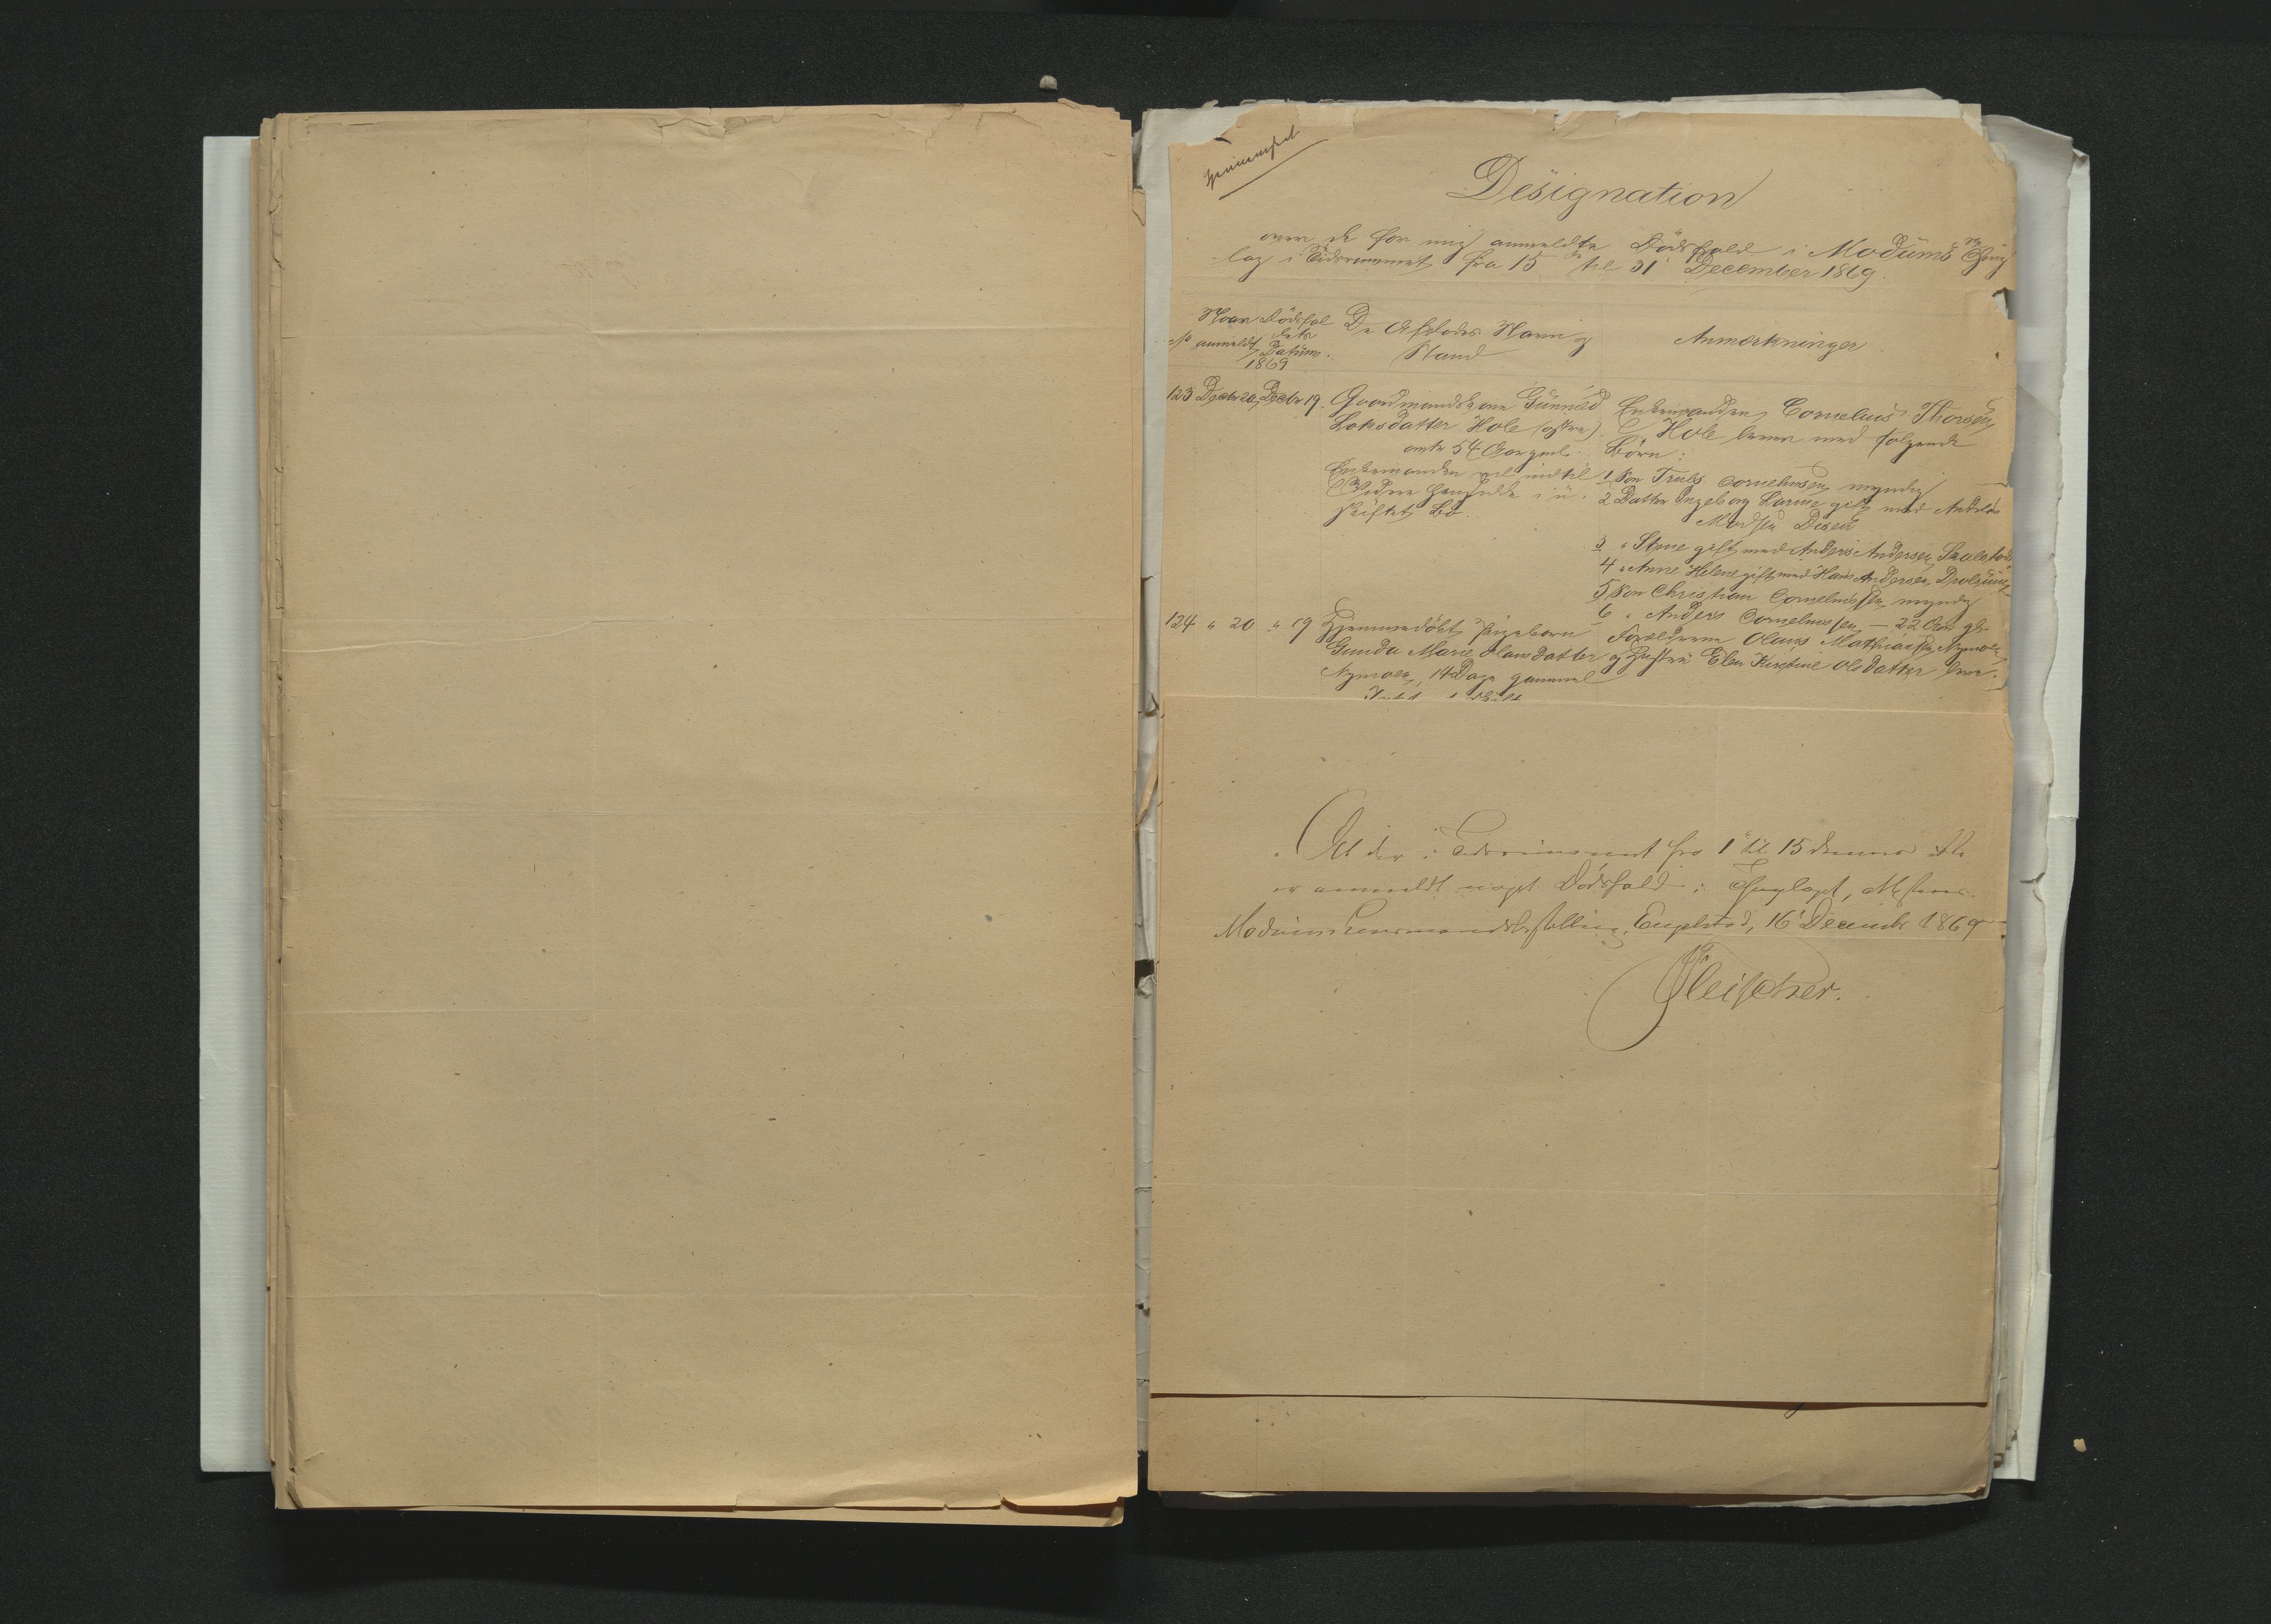 Designation
over de for mig anmeldte Dödsfald i Modums Thing
lag i Tidsrummet fra 15de til 31 December 1869.
Naar Dödsfal
dets
No anmeldt, Datum.
1869
De Afdødes Navn og
Stand
Anmærkninger
123 Decbr 20 Decbr 19. Gaardmandskone Gunnild
Larsdatter Hole (østre)
omtr 54 Aar gml.
Enkemanden vil indtil
Videre hensidde i u-
skiftet Bo.
Enkemanden Cornelius Thorsen
Hole lever med følgende
Börn:
1 Søn Truls Corneliussen myndig
2 Datter Ingeborg Larine gift med Andreas
Madsen Disen
3 " Stine gift med Anders Andersen
4 " Anne Helene gift med Hans Andersen
5 Søn Christian Corneliussen myndig
6 " Anders Corneliussen – 22 Aar gl.
124 " 20 " 19 Hjemmedöbt Pigebarn
Gunda Marie Olausdatter
Nymoen, 14 Dage gammel
Forældrene Olaus Mathiassen Nymoen
og Hustru Elen Kirstine Olsdatter lever.
At der i Tidsrummet fra 1 til 15 dennes ikke
er anmeldt noget Dødsfald i Thinglaget,
Modums Lensmandsbestilling, Engelstad, 16 December 1869
Fleischer.